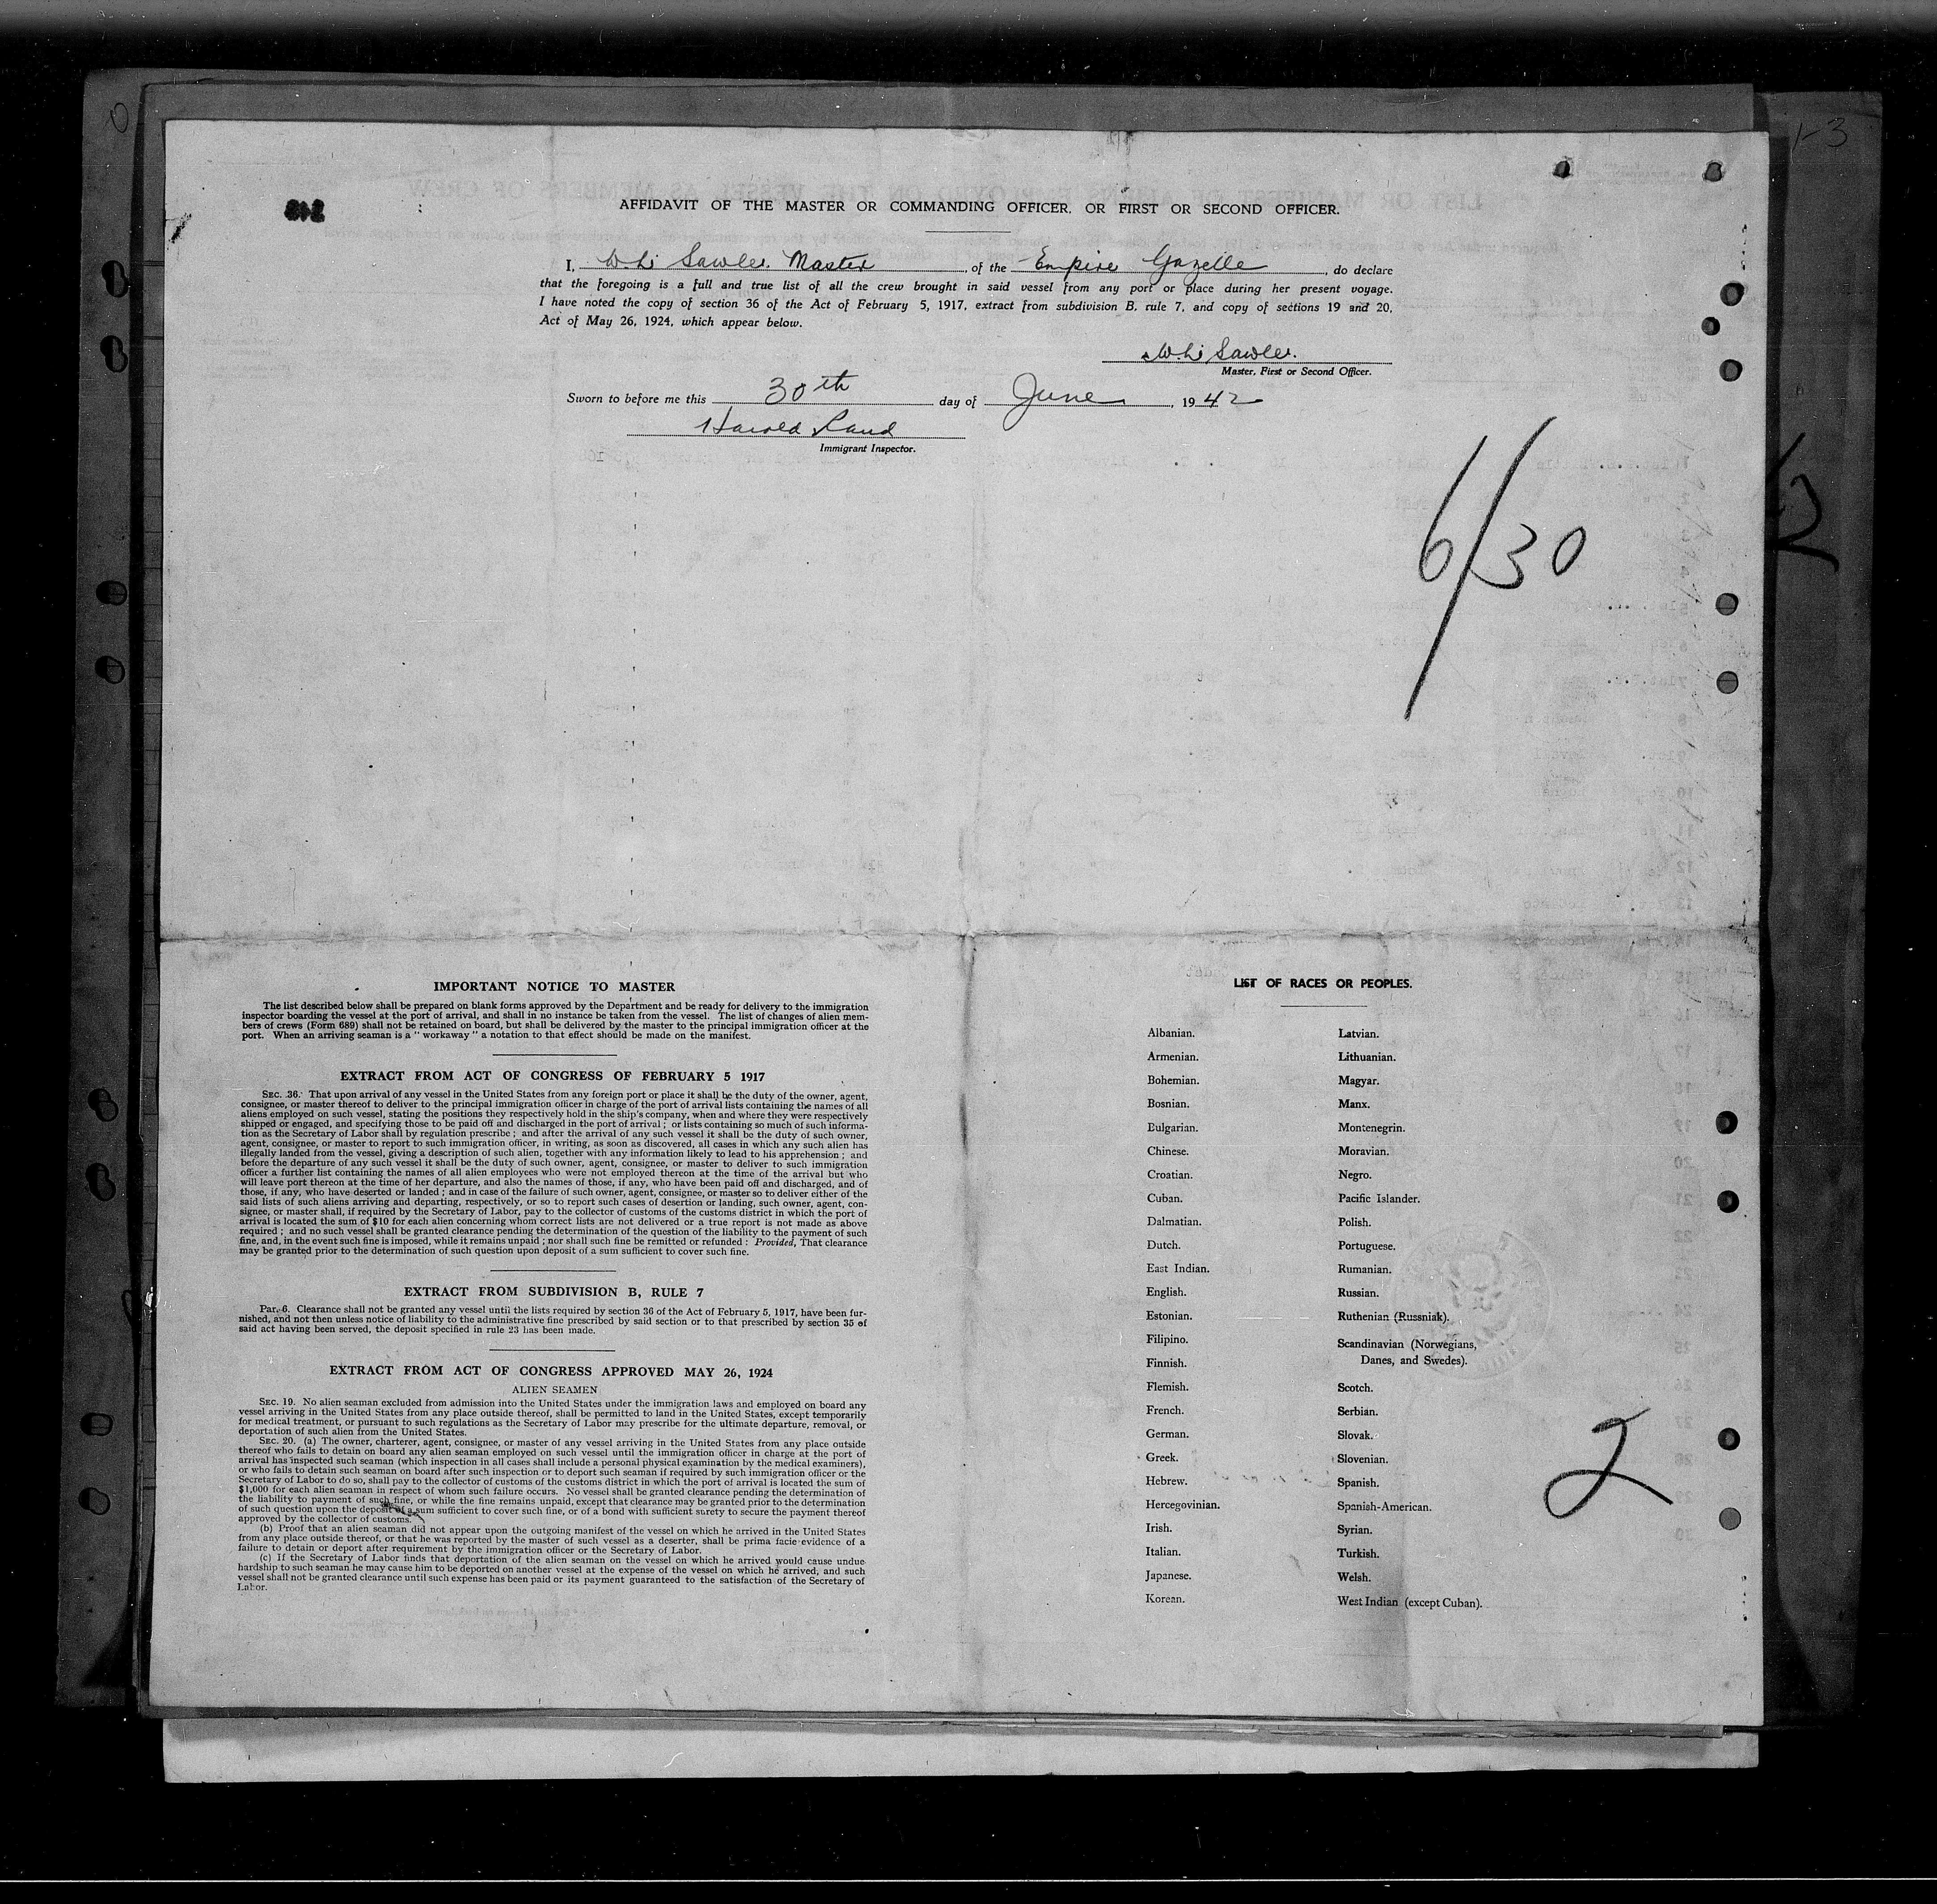 AFFIDAVIT OF THE MASTER OR COMMANDING OFFICER, OR FIRST OR SECOND OFFICER.
I, W. L. Sawler. Master, of the Empire Gazelle, do declare
that the foregoing is a full and true list of all the crew brought in said vessel from any port or place during her present voyage.
I have noted the copy of section 36 of the Act of February 5, 1917, extract from subdivision B, rule 7, and copy of sections 19 and 20,
Act of May 26, 1924, which appear below.
W. L. Sawler.
Master, First or Second Officer.
Sworn to before me this 30th day of June, 1942
Harold Land
Immigrant Inspector.
6/30
IMPORTANT NOTICE TO MASTER
The list described below shall be prepared on blank forms approved by the Department and be ready for delivery to the immigration
inspector boarding the vessel at the port of arrival, and shall in no instance be taken from the vessel. The list of changes of alien mem-
bers of crews (Form 689) shall not be retained on board, but shall be delivered by the master to the principal immigration officer at the
port. When an arriving seaman is a "workaway" a notation to that effect should be made on the manifest.
EXTRACT FROM ACT OF CONGRESS OF FEBRUARY 5 1917
SEC. 36. That upon arrival of any vessel in the United States from any foreign port or place it shall be the duty of the owner, agent,
consignee, or master thereof to deliver to the principal immigration officer in charge of the port of arrival lists containing the names of all
aliens employed on such vessel, stating the positions they respectively hold in the ship's company, when and where they were respectively
shipped or engaged, and specifying those to be paid off and discharged in the port of arrival; or lists containing so much of such informa-
tion as the Secretary of Labor shall by regulation prescribe; and after the arrival of any such vessel it shall be the duty of such owner,
agent, consignee, or master to report to such immigration officer, in writing, as soon as discovered, all cases in which any such alien has
illegally landed from the vessel, giving a description of such alien, together with any information likely to lead to his apprehension; and
before the departure of any such vessel it shall be the duty of such owner, agent, consignee, or master to deliver to such immigration
officer a further list containing the names of all alien employees who were not employed thereon at the time of the arrival but who
will leave port thereon at the time of her departure, and also the names of those, if any, who have been paid off and discharged, and of
those, if any, who have deserted or landed; and in case of the failure of such owner, agent, consignee, or master so to deliver either of the
said lists of such aliens arriving and departing, respectively, or so to report such cases of desertion or landing, such owner, agent, con-
signee, or master shall, if required by the Secretary of Labor, pay to the collector of customs of the customs district in which the port of
arrival is located the sum of $10 for each alien concerning whom correct lists are not delivered or a true report is not made as above
required; and no such vessel shall be granted clearance pending the determination of the question of the liability to the payment of such
fine, and, in the event such fine is imposed, while it remains unpaid; nor shall such fine be remitted or refunded: Provided, That clearance
may be granted prior to the determination of such question upon deposit of a sum sufficient to cover such fine.
EXTRACT FROM SUBDIVISION B, RULE 7
Par. 6. Clearance shall not be granted any vessel until the lists required by section 36 of the Act of February 5, 1917, have been fur-
nished, and not then unless notice of liability to the administrative fine prescribed by said section or to that prescribed by section 35 of
said act having been served, the deposit specified in rule 23 has been made.
EXTRACT FROM ACT OF CONGRESS APPROVED MAY 26, 1924
ALIEN SEAMEN
SEC. 19. No alien seaman excluded from admission into the United States under the immigration laws and employed on board any
vessel arriving in the United States from any place outside thereof, shall be permitted to land in the United States, except temporarily
for medical treatment, or pursuant to such regulations as the Secretary of Labor may prescribe for the ultimate departure, removal, or
deportation of such alien from the United States.
SEC. 20. (a) The owner, charterer, agent, consignee, or master of any vessel arriving in the United States from any place outside
thereof who fails to detain on board any alien seaman employed on such vessel until the immigration officer in charge at the port of
arrival has inspected such seaman (which inspection in all cases shall include a personal physical examination by the medical examiners),
or who fails to detain such seaman on board after such inspection or to deport such seaman if required by such immigration officer or the
Secretary of Labor to do so, shall pay to the collector of customs of the customs district in which the port of arrival is located the sum of
$1,000 for each alien seaman in respect of whom such failure occurs. No vessel shall be granted clearance pending the determination of
the liability to payment of such fine, or while the fine remains unpaid, except that clearance may be granted prior to the determination
of such question upon the deposit of a sum sufficient to cover such fine, or of a bond with sufficient surety to secure the payment thereof
approved by the collector of customs.
(b) Proof that an alien seaman did not appear upon the outgoing manifest of the vessel on which he arrived in the United States
from any place outside thereof, or that he was reported by the master of such vessel as a deserter, shall be prima facie evidence of a
failure to detain or deport after requirement by the immigration officer or the Secretary of Labor.
(c) If the Secretary of Labor finds that deportation of the alien seaman on the vessel on which he arrived would cause undue
hardship to such seaman he may cause him to be deported on another vessel at the expense of the vessel on which he arrived, and such
vessel shall not be granted clearance until such expense has been paid or its payment guaranteed to the satisfaction of the Secretary of
Labor.
LIST OF RACES OR PEOPLES.
Albanian.
Armenian.
Bohemian.
Bosnian.
Bulgarian.
Chinese.
Croatian.
Cuban.
Dalmatian.
Dutch.
East Indian.
English.
Estonian.
Filipino.
Finnish.
Flemish.
French.
German.
Greek.
Hebrew.
Hercegovinian.
Irish.
Italian.
Japanese.
Korean.
Latvian.
Lithuanian.
Magyar.
Manx.
Montenegrin.
Moravian.
Negro.
Pacific Islander.
Polish.
Portuguese.
Rumanian.
Russian.
Ruthenian (Russniak).
Scandinavian (Norwegians,
Danes, and Swedes).
Scotch.
Serbian.
Slovak.
Slovenian.
Spanish.
Spanish-American.
Syrian.
Turkish.
Welsh.
West Indian (except Cuban).
2